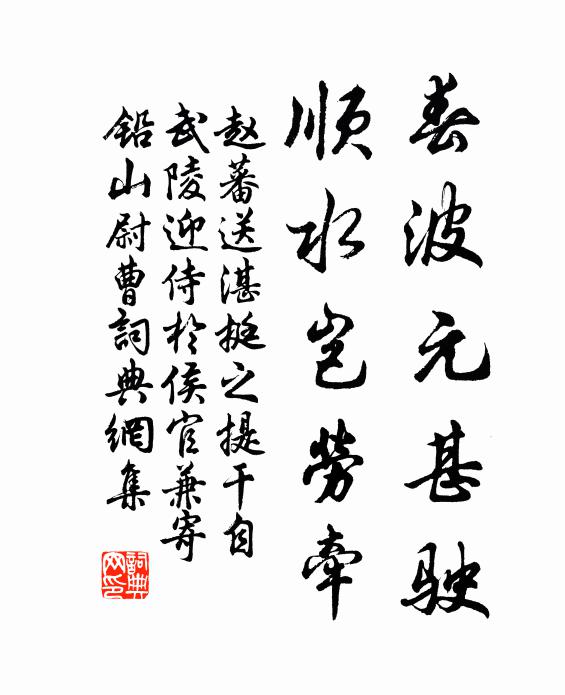 春波元甚駛
順水豈勞牽
赵蕃送湛挺之提干自
武陵迎侍於侯官兼寄
鉛山尉曹詞典網集
詞典网印